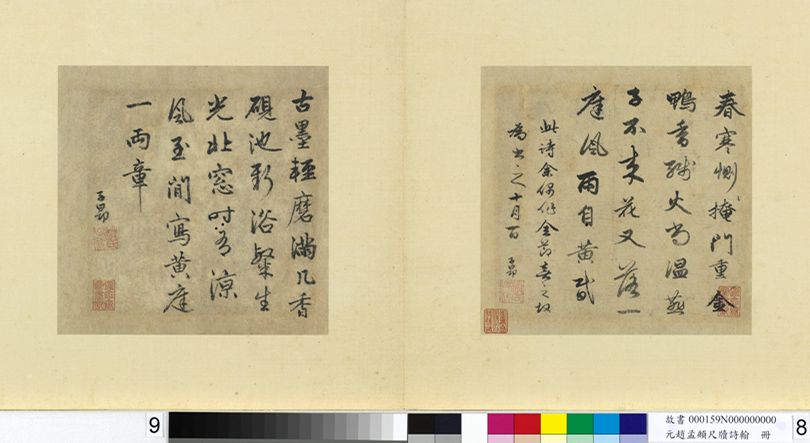 春寒惻〻掩門重金
鴨香殘火尚溫燕
子不来花又落一
庭風雨自黃昏
此詩余偶作金節喜之故
為書之十月一日
子昂
古墨輕磨滿几香
硯池新浴粲生
光北窓時有涼
風至閒寫黃庭
一兩章
子昂
9
故書 000159N000000000
元趙孟頫尺牘詩翰 冊
8